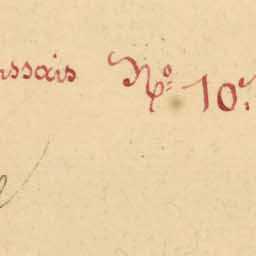 ussais No. 10.